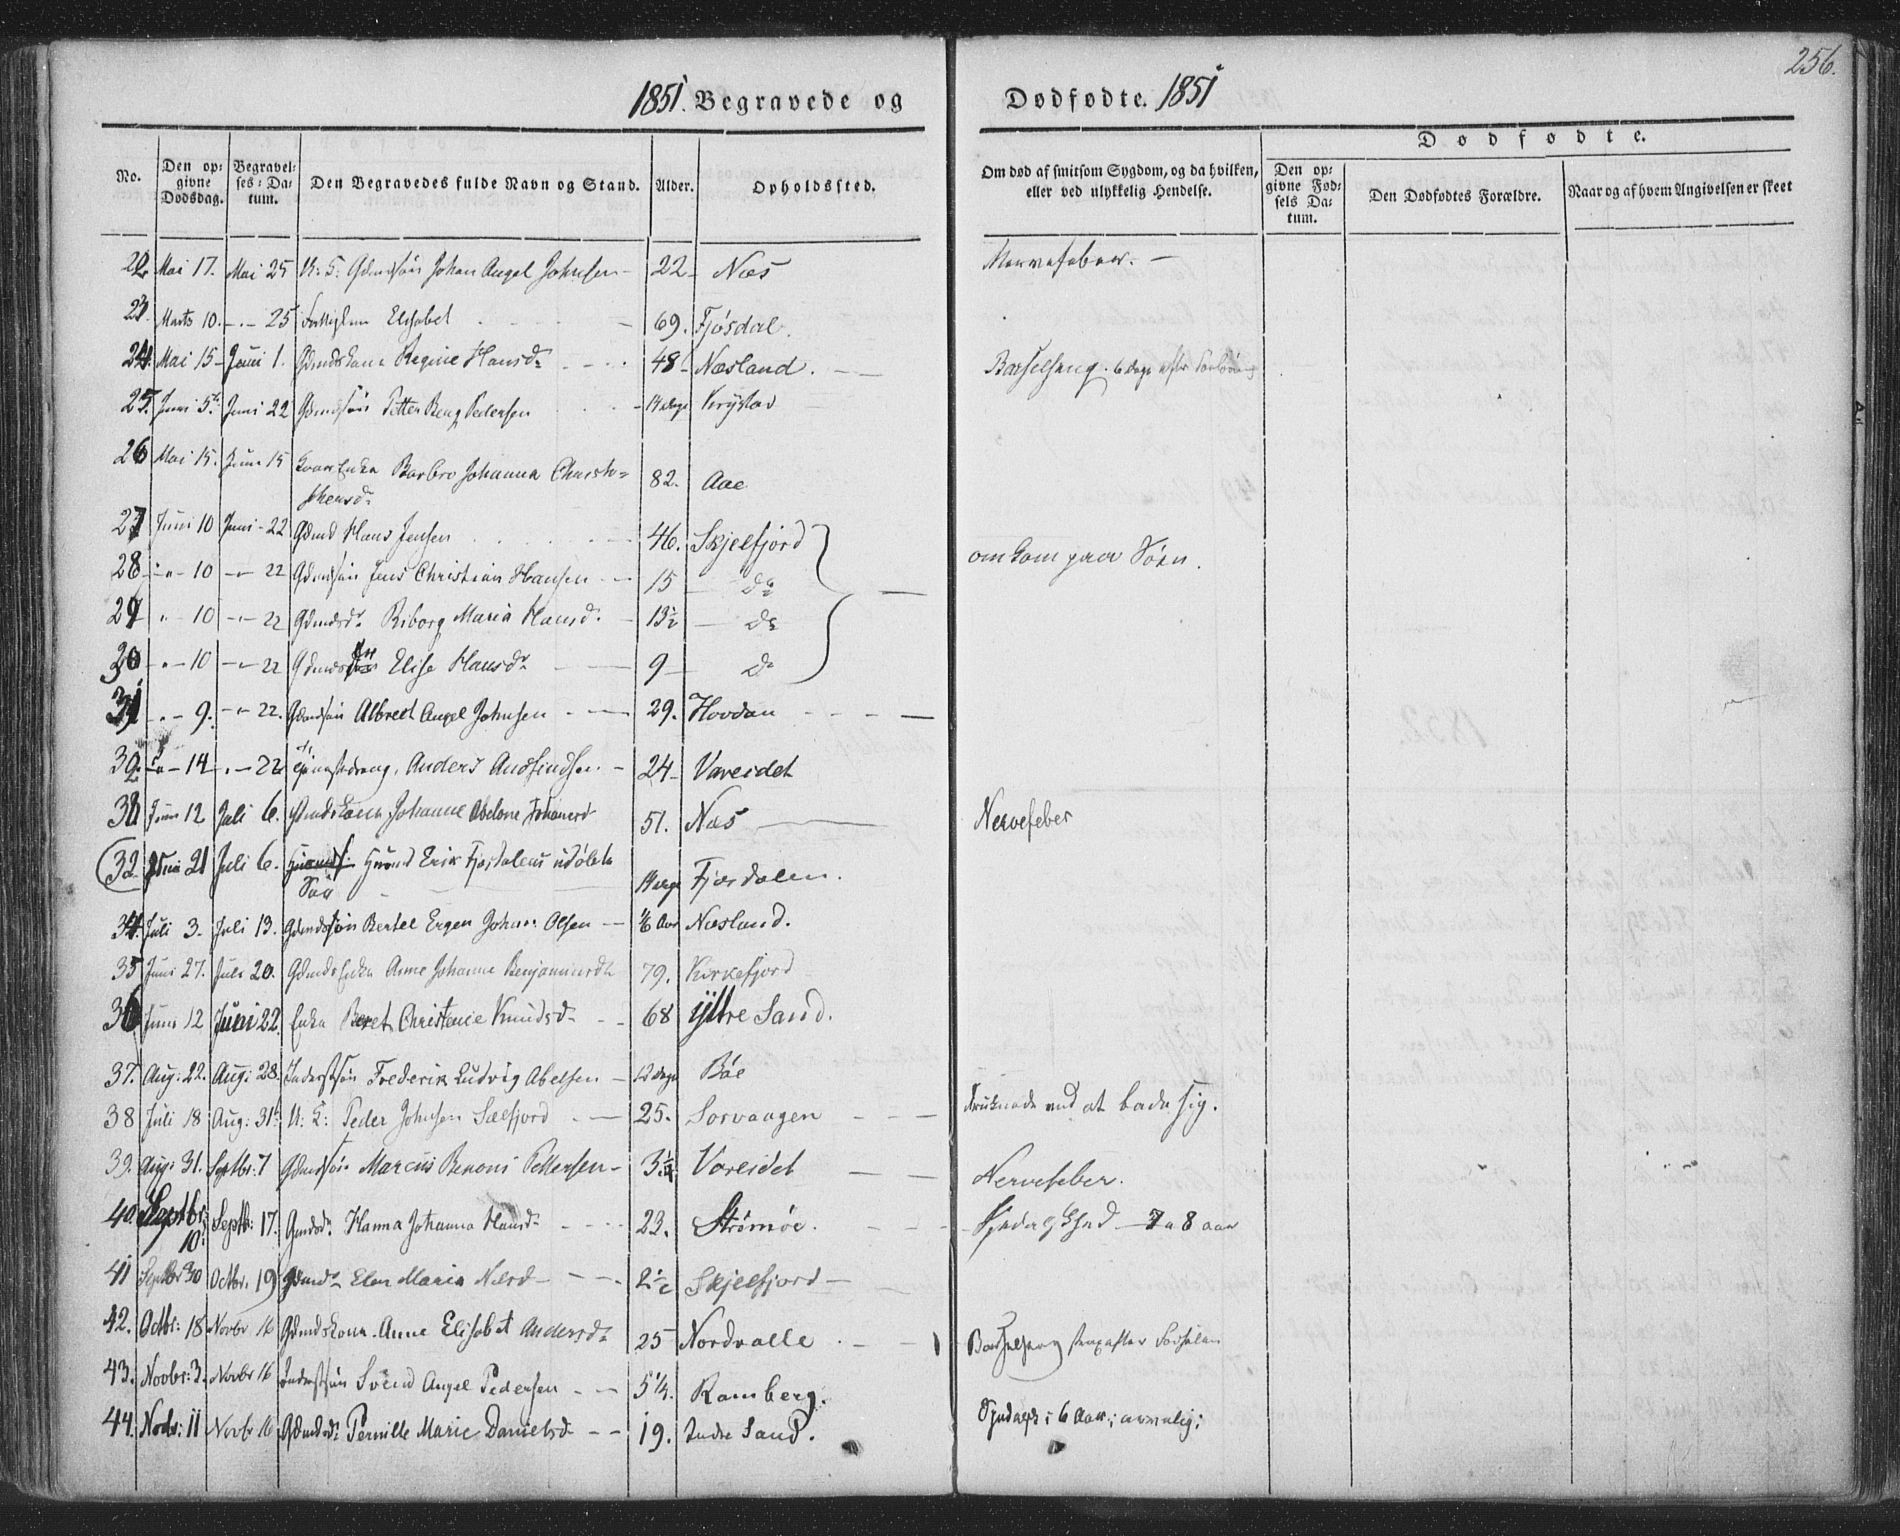 256.
1851. Begravede og Dødfødte. 1851
Dødfødte.
No. Den opgivne Dødsdag. Begravelses-Datum. Den Begravedes fulde Navn og Stand. Alder. Opholdssted. Om død af smitsom Sygdom, og da hvilken, eller ved ulykkelig Hendelse. Den opgivne Fødsels Datum. Den Dødfødtes Forældre. Naar og af hvem Angivelsen er skeet
22 Mai 17. Mai 25 U: S: Gdmdsøn Johan Angel Johnsen - 22- Næs Nervefeber. -
23. Marts 10. -"- 25 Elisabet - 69. Fjøsdal.
24. Mai 15 - Juni 1. Gdmdskone Regine Hansd. 48- Næsland. Barselseng. 6 Dage efter
25. Juni 5. Juni 22 Gdmdsøn Petter Beng Pedersen 14 dage Krystad
26 Mai 15. Juni 15 Enke Barbro Johanna Christo=
phersd. 82. Aae
27 Juni 10 Juni - 22 Gdmd Hans Jensen 46. Skjelfjord
28 -"- 10 -"- 22 Gdmdsøn Jens Christian Hansen - 15 - Do omkom paa Søen.
29 " 10 -"- 22 Gdmdsd. Riborg Maria Hansd. - 13½ - Do
30 -"- 10 -"- 22 Elise Hansdr 9- Do
31 -"- 9. -"- 22. Gdmdsøn Albrect Angel Johnsen - 29. Hovdan
32. -"- 14 -"- 22 Tjenestedreng, Anders - 24- Vareidet
33 Juni 12 Juli 6. Gdmdskone Johanne Abelone 51. Næs Nervefeber
32. Juni 21 Juli 6. Huusmd Erik Fjordalens udøbte
Søn 14 dage Fjærdalen.
34. Juli 3. Juli 13. Gdmdssøn Bertel Ergen Johan Olsen - ⅙ Aar Næsland.
35 Juni 27. Juli 20. Gdmds Enke Anne Johanne Benjaminsd. 79. Kirkefjord
36 Juni 12 Juni 22. Enke Beret Christense Knudsd. 68 Yttre Sand.
37. Aug: 22. Aug: 28. Inderstsøn Frederik Ludvig Abelsen - 12 dage Bøe
38 Juli 18 Aug: 31. U: K: Peder Johnsen Sælfjord 25. Sorvaagen druknede ved at bade sig.
39. Aug: 31. Septbr: 7 Gdmdsøn Marcus Benoni Pettersen - 3¼ Vareidet Nervefeber.
40. Septbr: 10. Septb: 17. Gmdsd. Hanna Johanna Hansd. 23. Strømøe. Spedalskhed - 7 a 8 aar
41 Septbr 30 Octbr. 19 Elen Maria Nilsd - 2½ Skjelfjord -
42. Octbr: 18 Novbr 16 Gdmdskone Anne Elisabet Andersd. 25 Nordvalle Barselseng strax efter Fødselen
43. Novbr: 3. Novbr 16 Inderstsøn Svend Angel Pedersen - 5¼. Ramberg.
44. Novbr: 11 Novbr 16 Gdmdsd: Pernille Marie Danielsd - 19. Indre Sand. Spedalsk i 6 Aar;